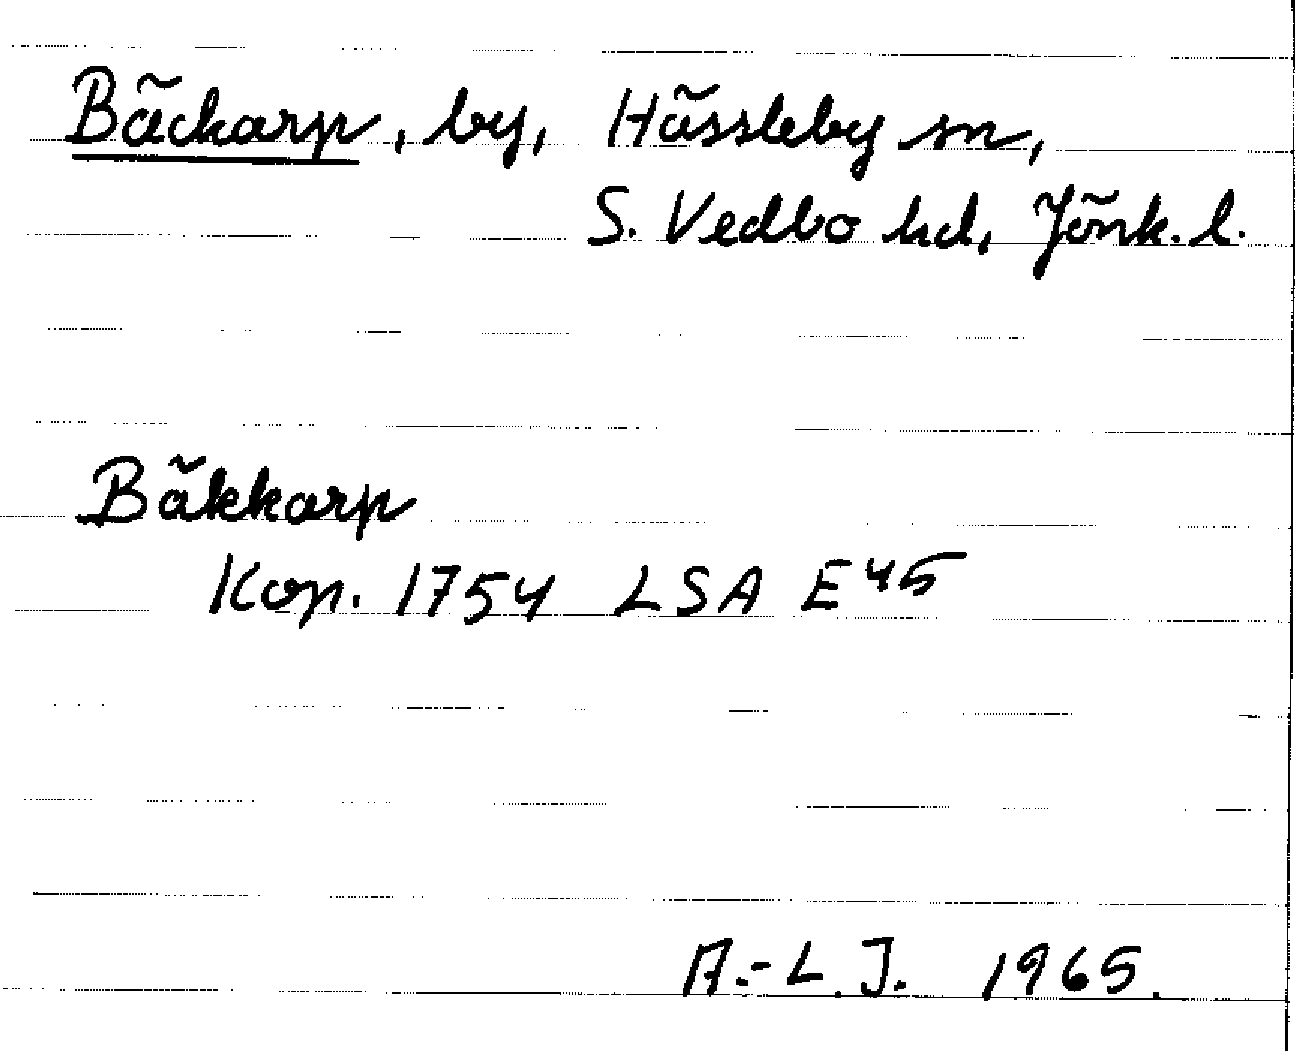 Bäckarp, by, Hässleby sn,
S. Vedbo hd, Jönk. l.
Bäkkarp
Kop. 1754 LSA E 45
A.-L. J. 1965.